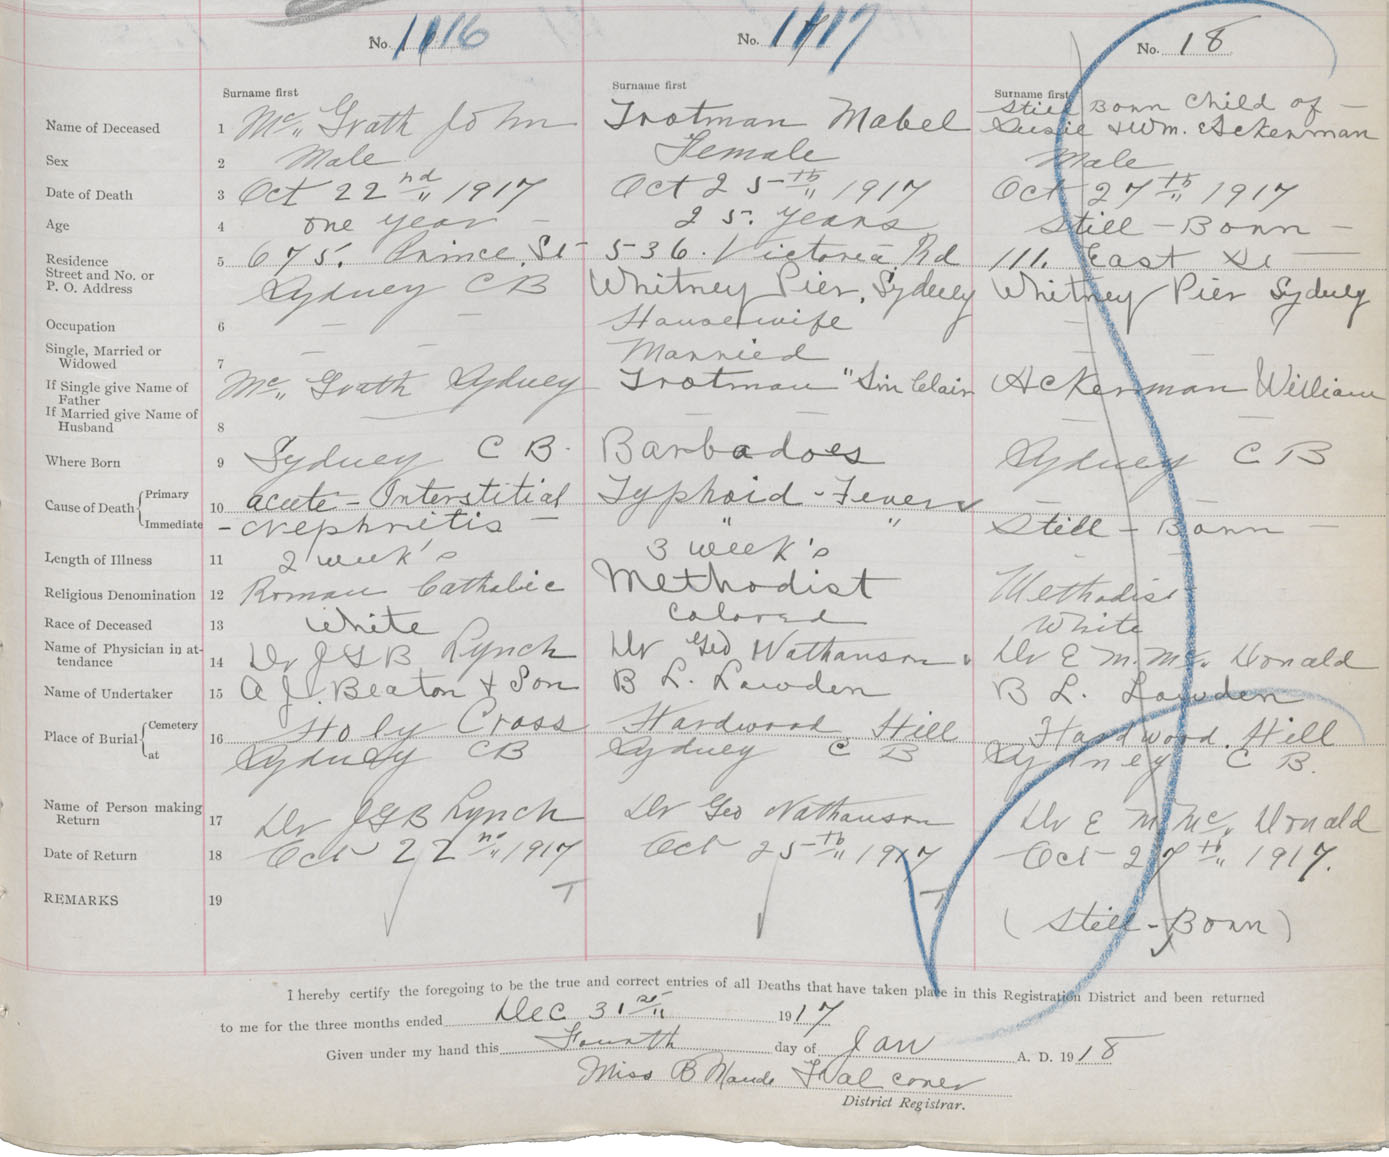 No. 1116
No. 1117
No. 18
Surname first
Surname first
Surname first
Name of Deceased 1 Mc,, Grath John
Trotman Mabel
Still Born Child of —
Susie & Wm. Ackerman
Sex 2 Male
Female
Male
Date of Death 3 Oct 22nd,, 1917
Oct 25th,, 1917
Oct 27th,, 1917
Age 4 one year —
25. years
Still - Born —
Residence
Street and No. or
P. O. Address
5 675. Prince. St -
Sydney C B
536. Victoria Rd
Whitney Pier, Sydney
111. East St —
Whitney Pier Sydney
Occupation 6 — —
Housewife
Single, Married or
Widowed
7 — —
Married
If Single give Name of
Father
Mc,, Grath Sydney
Trotman " Sinclair
Ackerman William
If Married give Name of
Husband
8
Where Born 9 Sydney C B.
Barbadoes
Sydney C B
Cause of Death { Primary
Immediate
10 acute - Interstitial
- Nephritis —
Typhoid - Fever
" "
—
Still - Born —
Length of Illness 11 2 week's
3 week's
Religious Denomination 12 Roman Catholic
Methodist
Methodist
Race of Deceased 13 White
Colored
White
Name of Physician in at-
tendance
14 Dr J G B Lynch
Dr Geo Nathanson
Dr E M. Mc,, Donald
Name of Undertaker 15 A J. Beaton & Son
B L. Lowden
B L. Lowden
Place of Burial { Cemetery
at
16 Holy Cross
Sydney CB
Hardwood Hill
Sydney C B
Hardwood. Hill
Sydney C B.
Name of Person making
Return
17 Dr J G B Lynch
Dr Geo Nathanson
Dr E M Mc,, Donald
Date of Return 18 Oct 22nd,, 1917
Oct 25th,, 1917
Oct 27th,, 1917.
REMARKS 19
T
T
( Still - Born )
I hereby certify the foregoing to be the true and correct entries of all Deaths that have taken place in this Registration District and been returned
to me for the three months ended Dec 31st,, 1917
Given under my hand this Fourth day of Jan A. D. 1918
Miss B Maude Falconer
District Registrar.